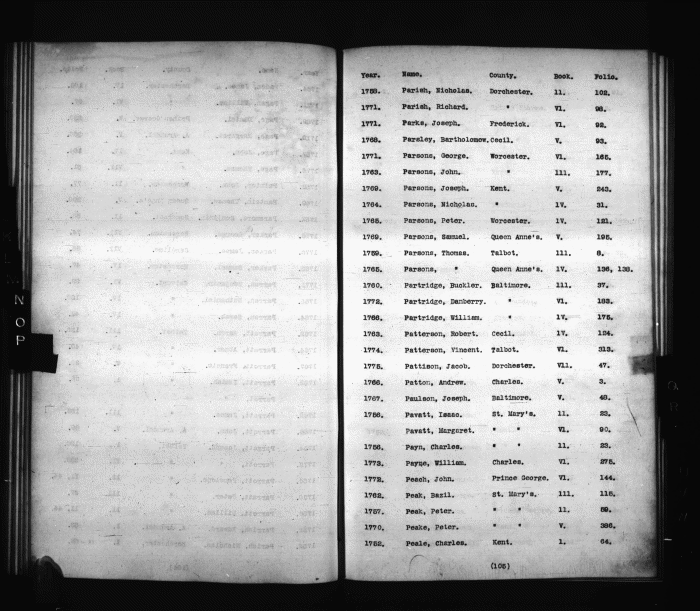 N
O
P
Year. Name. County. Book. Folio.
1758. Parish, Nicholas. Dorchester. 11. 102.
1771. Parish, Richard. " V1. 98.
1771. Parks, Joseph. Frederick. V1. 92.
1768. Parsley, Bartholomew. Cecil. V. 93.
1771. Parsons, George. Worcester. V1. 165.
1763. Parsons, John. " 111. 177.
1769. Parsons, Joseph. Kent. V. 243.
1764. Parsons, Nicholas. " 1V. 31.
1765. Parsons, Peter. Worcester. 1V. 121.
1769. Parsons, Samuel. Queen Anne's. V. 195.
1759. Parsons, Thomas. Talbot. 111. 8.
1765. Parsons, " Queen Anne's. 1V. 136, 138.
1760. Partridge, Buckler. Baltimore. 111. 37.
1772. Partridge, Danberry. " V1. 183.
1766. Partridge, William. " 1V. 175.
1763. Patterson, Robert. Cecil. 1V. 124.
1774. Patterson, Vincent. Talbot. V1. 313.
1775. Pattison, Jacob. Dorchester. V11. 47.
1766. Patton, Andrew. Charles. V. 3.
1767. Paulson, Joseph. Baltimore. V. 48.
1756. Pavatt, Isaac. St. Mary's. 11. 23.
Pavatt, Margaret. " " V1. 90.
1756. Payn, Charles. " " 11. 23.
1773. Payne, William. Charles. V1. 275.
1772. Peach, John. Prince George. V1. 144.
1762. Peak, Bazil. St. Mary's. 111. 115.
1757. Peak, Peter. " " 11. 59.
1770. Peake, Peter. " " V. 386.
1752. Peale, Charles. Kent. 1. 64.
(105)